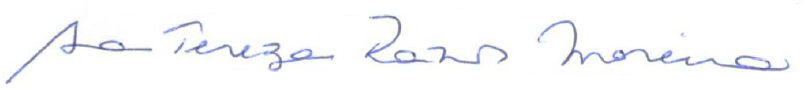 Ana Tereza Ramos Moreira